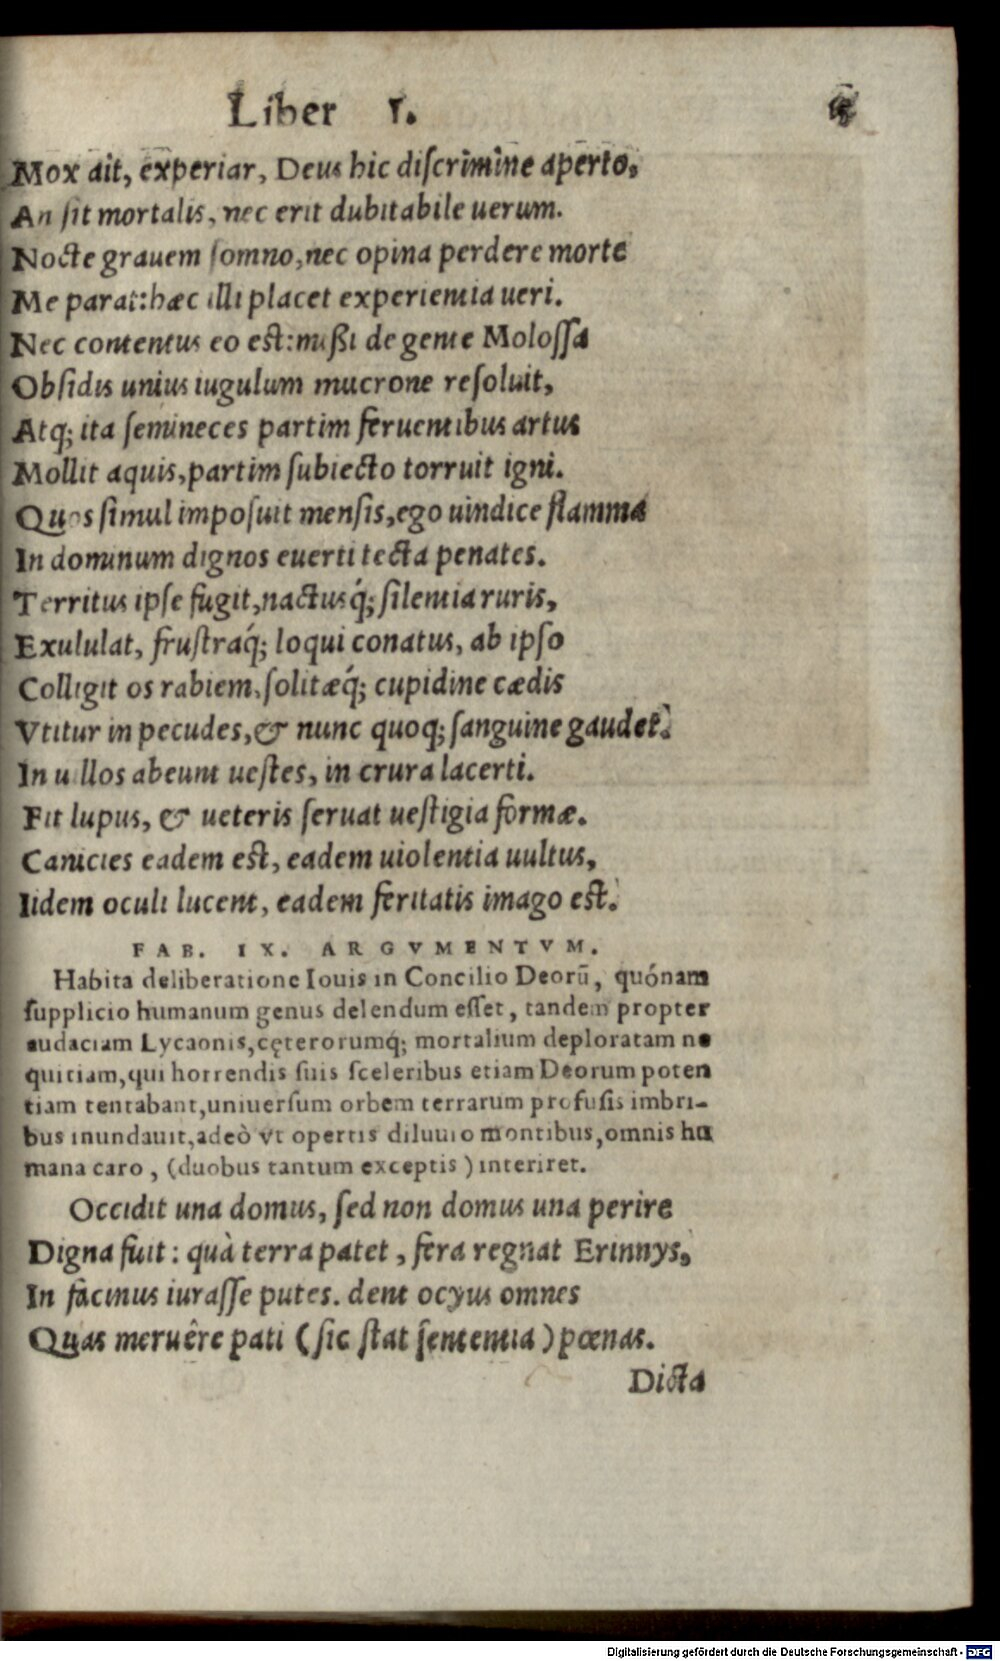 Liber I.
Mox ait, experiar, Deus hic diſcrimine aperto,
An ſit mortalis, nec erit dubitabile uerum.
Nocte grauem ſomno, nec opina perdere morte
Me parat: hæc illi placet experientia ueri.
Nec contentus eo eſt: mißi de gente Moloſſa
Obſidis unius iugulum mucrone reſoluit,
Atq; ita ſemineces partim feruentibus artus
Mollit aquis, partim ſubiecto torruit igni.
Quos ſimul impoſuit menſis, ego uindice flamma
In dominum dignos euerti tecta penates.
Territus ipſe fugit, nactusq́; ſilentia ruris,
Exululat, fruſtraq́; loqui conatus, ab ipſo
Colligit os rabiem, ſolitæq́; cupidine cædis
Vtitur in pecudes, & nunc quoq; ſanguine gaudet.
In uillos abeunt ueſtes, in crura lacerti.
Fit lupus, & ueteris ſeruat ueſtigia formæ.
Canicies eadem eſt, eadem uiolentia uultus,
Iidem oculi lucent, eadem feritatis imago eſt.
FAB. IX. ARGVMENTVM.
Habita deliberatione Iouis in Concilio Deorū, quónam
ſupplicio humanum genus delendum eſſet, tandem propter
audaciam Lycaonis, cęterorumq́; mortalium deploratam ne
quitiam, qui horrendis ſuis ſceleribus etiam Deorum poten
tiam tentabant, uniuerſum orbem terrarum profuſis imbri-
bus inundauit, adeò vt opertis diluuio montibus, omnis hu
mana caro, (duobus tantum exceptis) interiret.
Occidit una domus, ſed non domus una perire
Digna fuit: quà terra patet, fera regnat Erinnys,
In facinus iuraſſe putes. dent ocyus omnes
Quas meruêre pati (ſic ſtat ſententia) pœnas.
Dicta
Digitalisierung gefördert durch die Deutsche Forschungsgemeinschaft - DFG